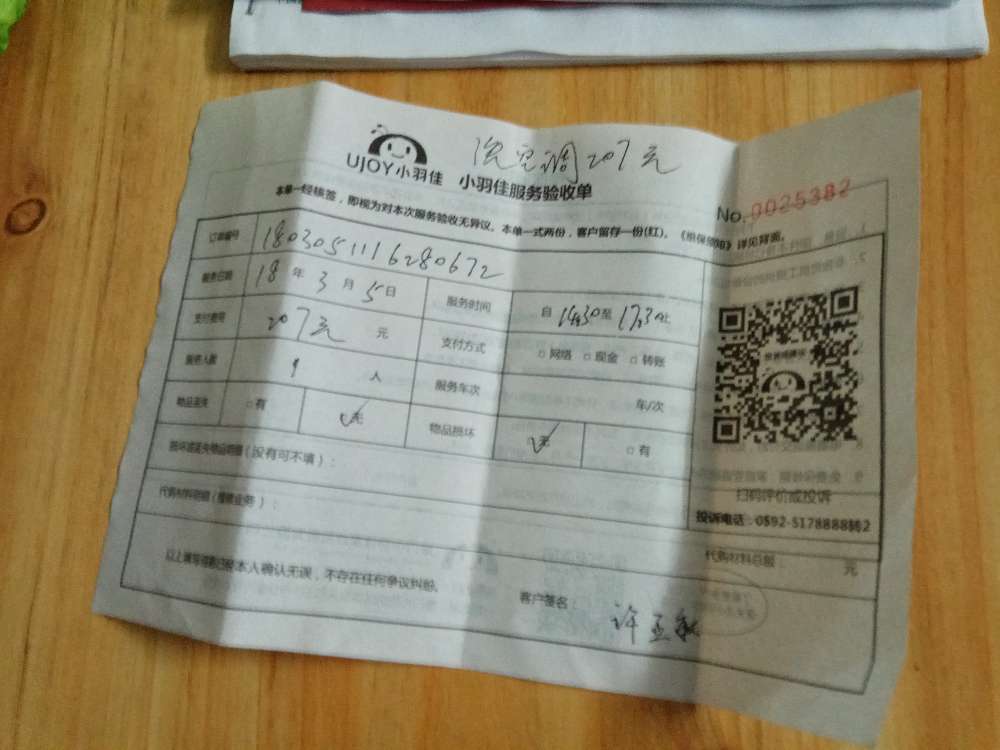 洗空调207元
UJOY小羽佳 小羽佳服务验收单
No.0025382
本单一经核签，即视为对本次服务验收无异议。本单一式两份，客户留存一份(红)。《维保须知》详见背面。
订单编号 1803051116280672
服务日期 18 年 3 月 5 日 服务时间 自 14:30 至 17:30 止
支付费用 207元 元 支付方式 □网络 □现金 □转账
服务人数 1 人 服务车次 车/次
物品丢失 □有 ✓无 物品损坏 ✓无 □有
损坏或丢失物品明细（没有可不填）：
代购材料明细（维修业务）：
扫码评价或投诉
投诉电话：0592-5178888转2
代购材料总额： 元
以上填写信息已经本人确认无误，不存在任何争议纠纷。
客户签名： 许